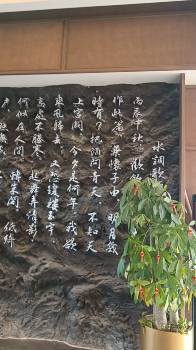 水調歌
丙辰中秋 歡飲
作此篇 兼懷子由 明月幾
時有 把酒問青天 不知天
上宮闕 今夕是何年 我欲
乘風歸去 又恐瓊樓玉宇
高處不勝寒 起舞弄清影
何似在人間 轉朱閣 低綺
户